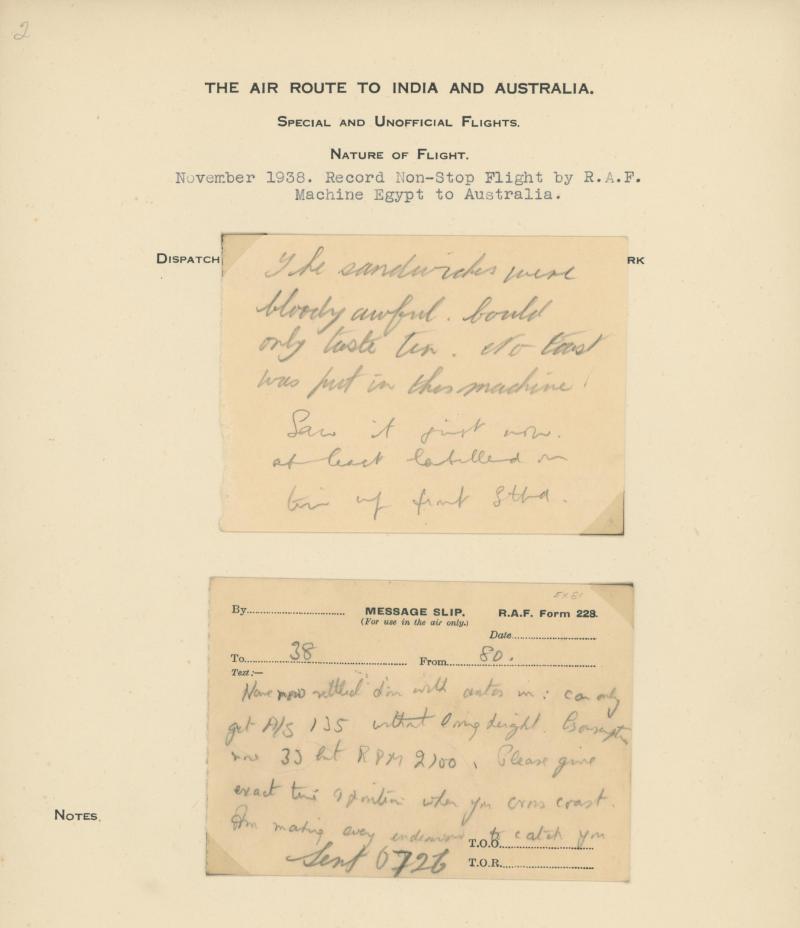 2
THE AIR ROUTE TO INDIA AND AUSTRALIA.
SPECIAL AND UNOFFICIAL FLIGHTS.
NATURE OF FLIGHT.
November 1938. Record Non-Stop Flight by R.A.F.
Machine Egypt to Australia.
DISPATCH
RK
The sandwiches were
bloody awful. Could
only taste tin. No toast
was put in this machine!
Saw it just now.
at least labelled on
tin up front Stbd.
EX 61
By
MESSAGE SLIP.
R.A.F. Form 228.
(For use in the air only.)
Date
To 38 From 80.
Text:—
Have now settled down with autos in: can only
get A/S 135 without losing height.
now 33 but RPM 2100. Please give
exact time & position when you cross coast.
Am making every endeavour to catch you
T.O.O.
Sent 0726
T.O.R.
NOTES.